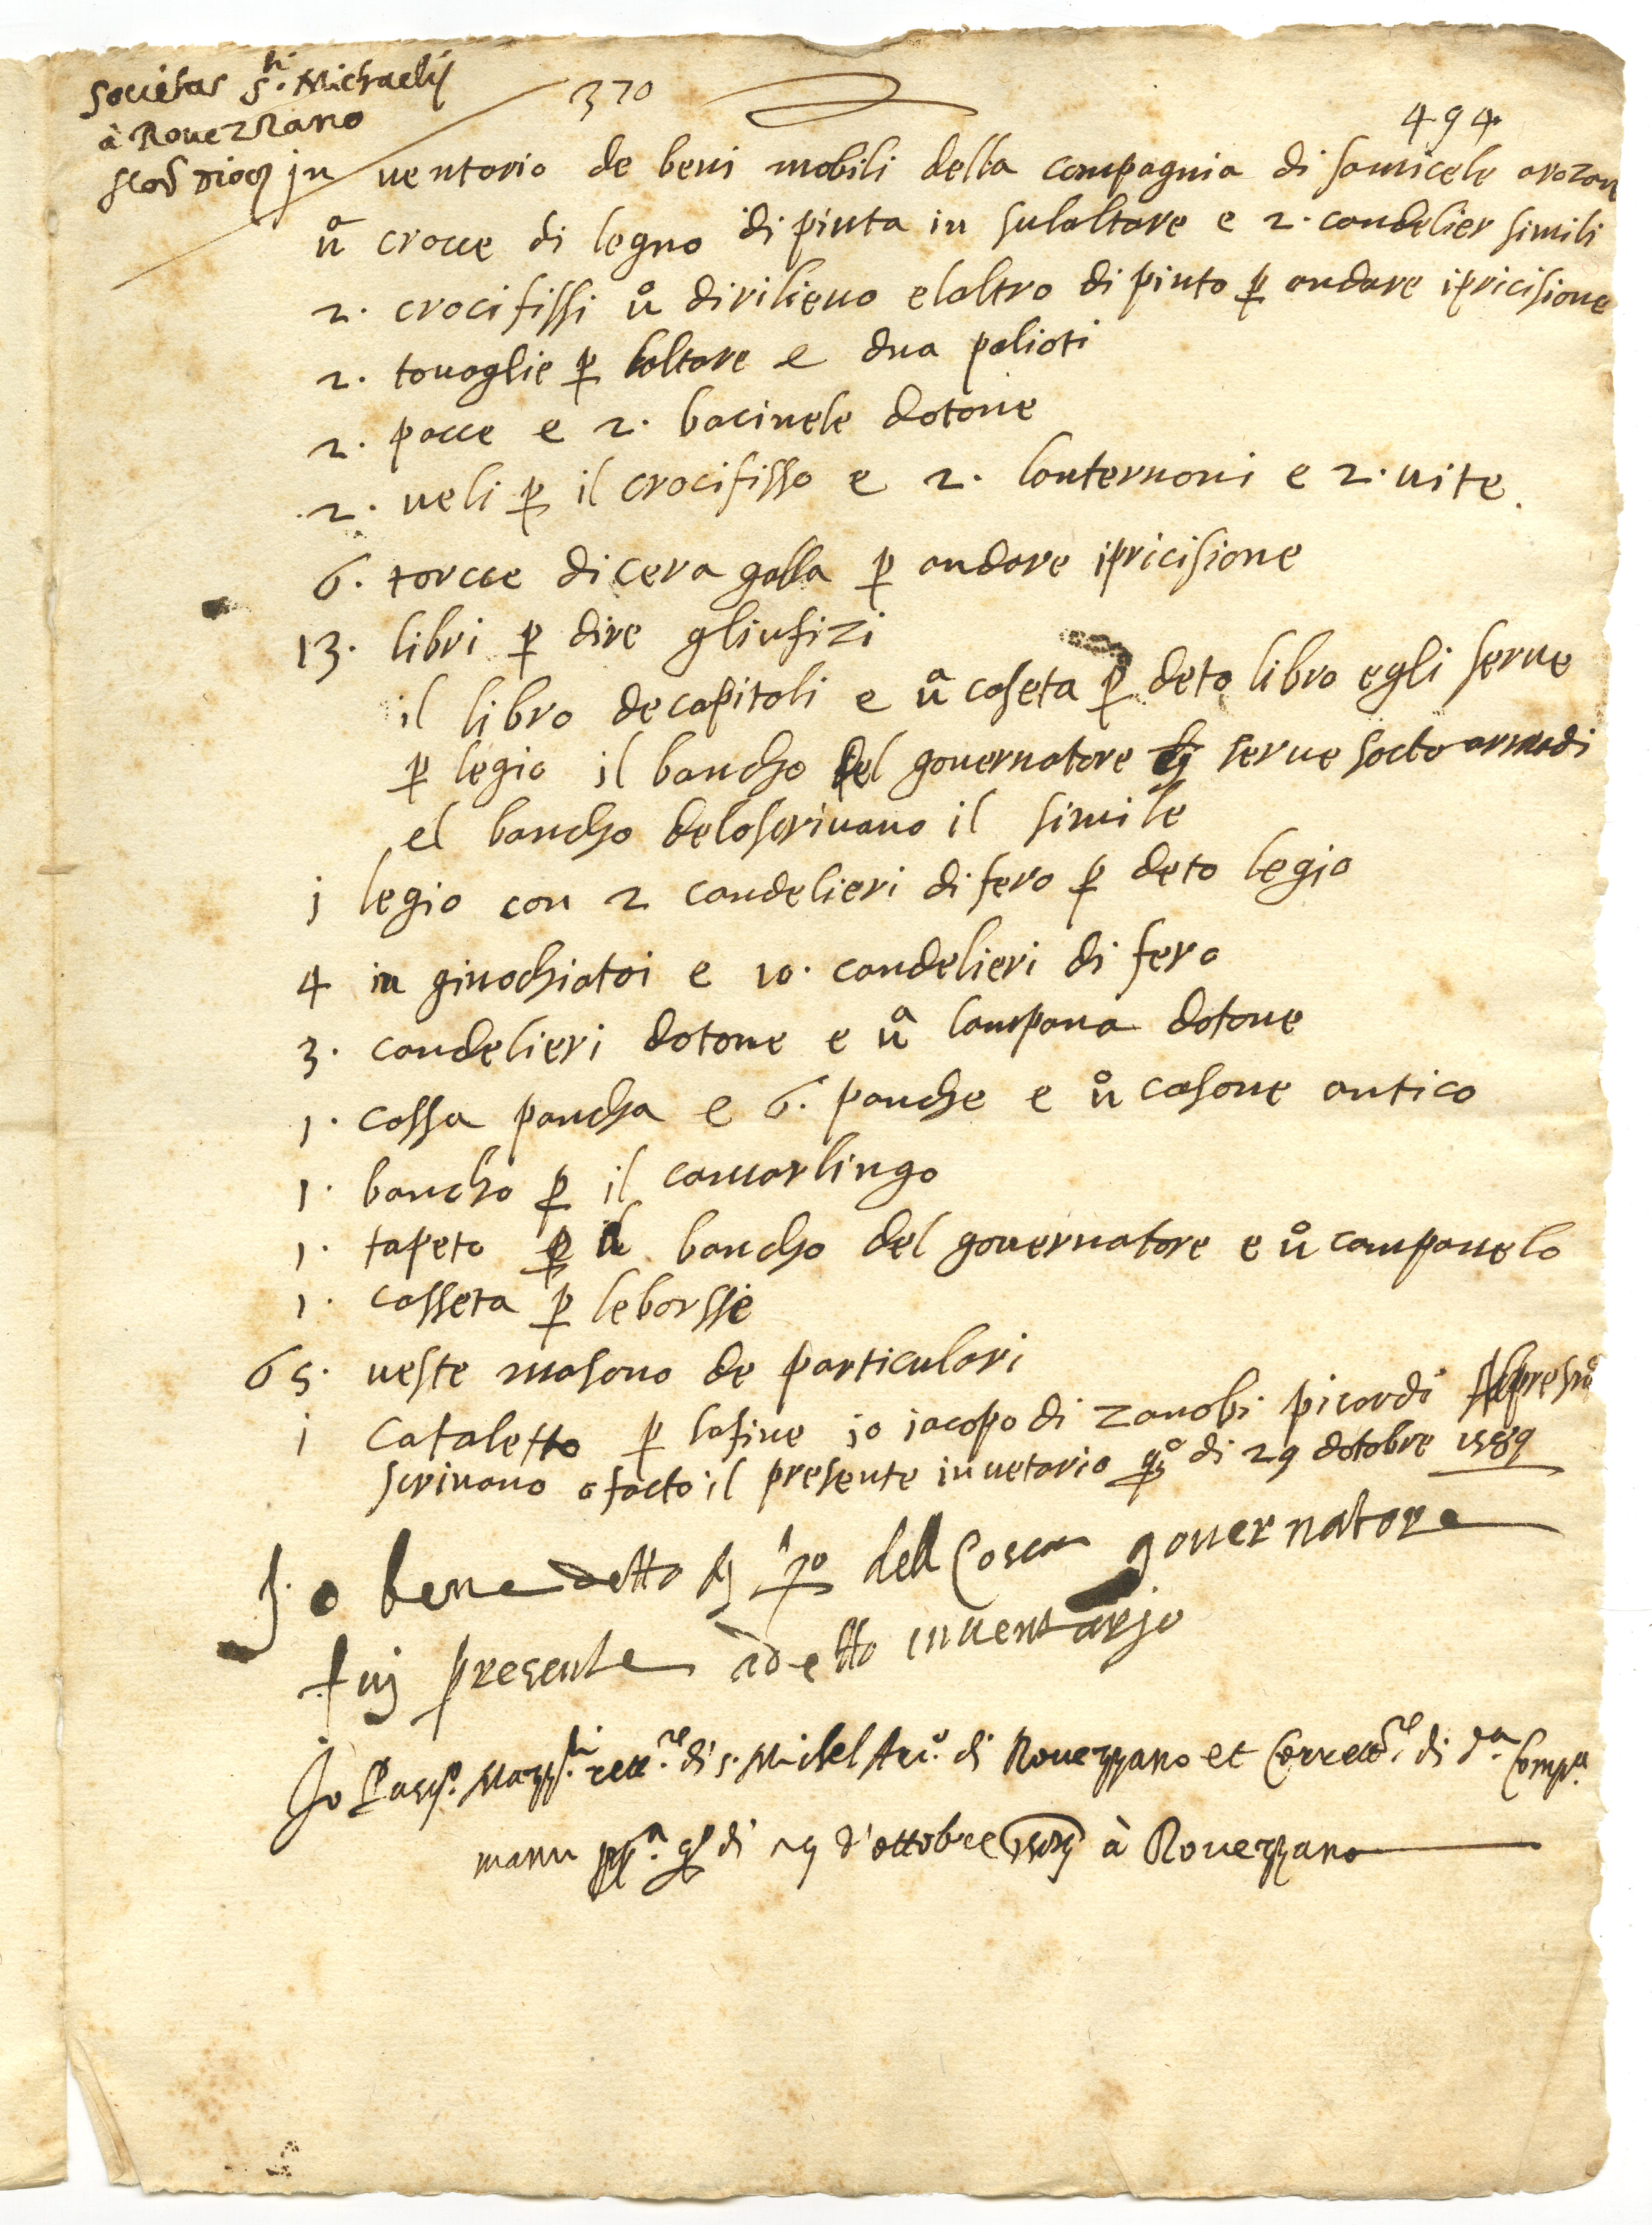 Societas S.ti Michaelis
à Rouezzano
370
494
in uentario de beni mobili della compagnia di samicele arozan
ũa crocce di legno dipinta in sulaltare e 2. candelier simili
2. crocifissi ũo dirilieuo elaltro dipinto p andare ipricisione
2. touaglie p laltare e dua palioti
2. pacce e 2. bacinele dotone
2. ueli p il crocifisso e 2. lanternoni e 2. uite.
6. torcce dicera galla p andare ipricisione
13. libri p dire gliufizi
il libro decapitoli e ũa caseta p deto libro egli serue
p legio il bancho del gouernatore serue socto armadi
el bancho deloscriuano il simile
i legio con 2 candelieri di fero p deto legio
4 in ginochiatoi e 10. candelieri di fero
3. candelieri dotone e ũa lampana dotone
1. cassa pancha e 6. panche e ũo casone antico
1. bancho p il camarlingo
1. tapeto p il bancho del gouernatore e ũo campanelo
1. casseta p leborsse
65. ueste masono de particulari
i cataletto p lafine io iacopo di zanobi picardi
scriuano o facto il presente inuetario qo di 29 dotobre 1589
Io benedetto di del Cosca gouernatore
fui presente a detto inuentario
Io di s. Michel Arc.o di Rouezzano et Corrett.re di d.a Comp.a
manu pp.a di 29 d'ottobre 1589 à Rouezzano